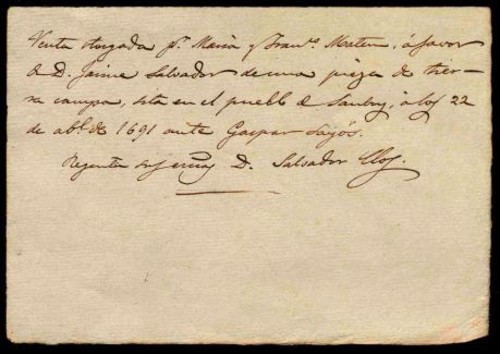 Venta otorgada pr. Maria y Franco. Mateu, á favor
de D. Jaime Salvador de una pieza de tier-
ra campa, sita en el pueblo de Sanboy, á los 22
de abl. de 1691 ante Gaspar Sayós.
Regenta sus D. Salvador Clos.